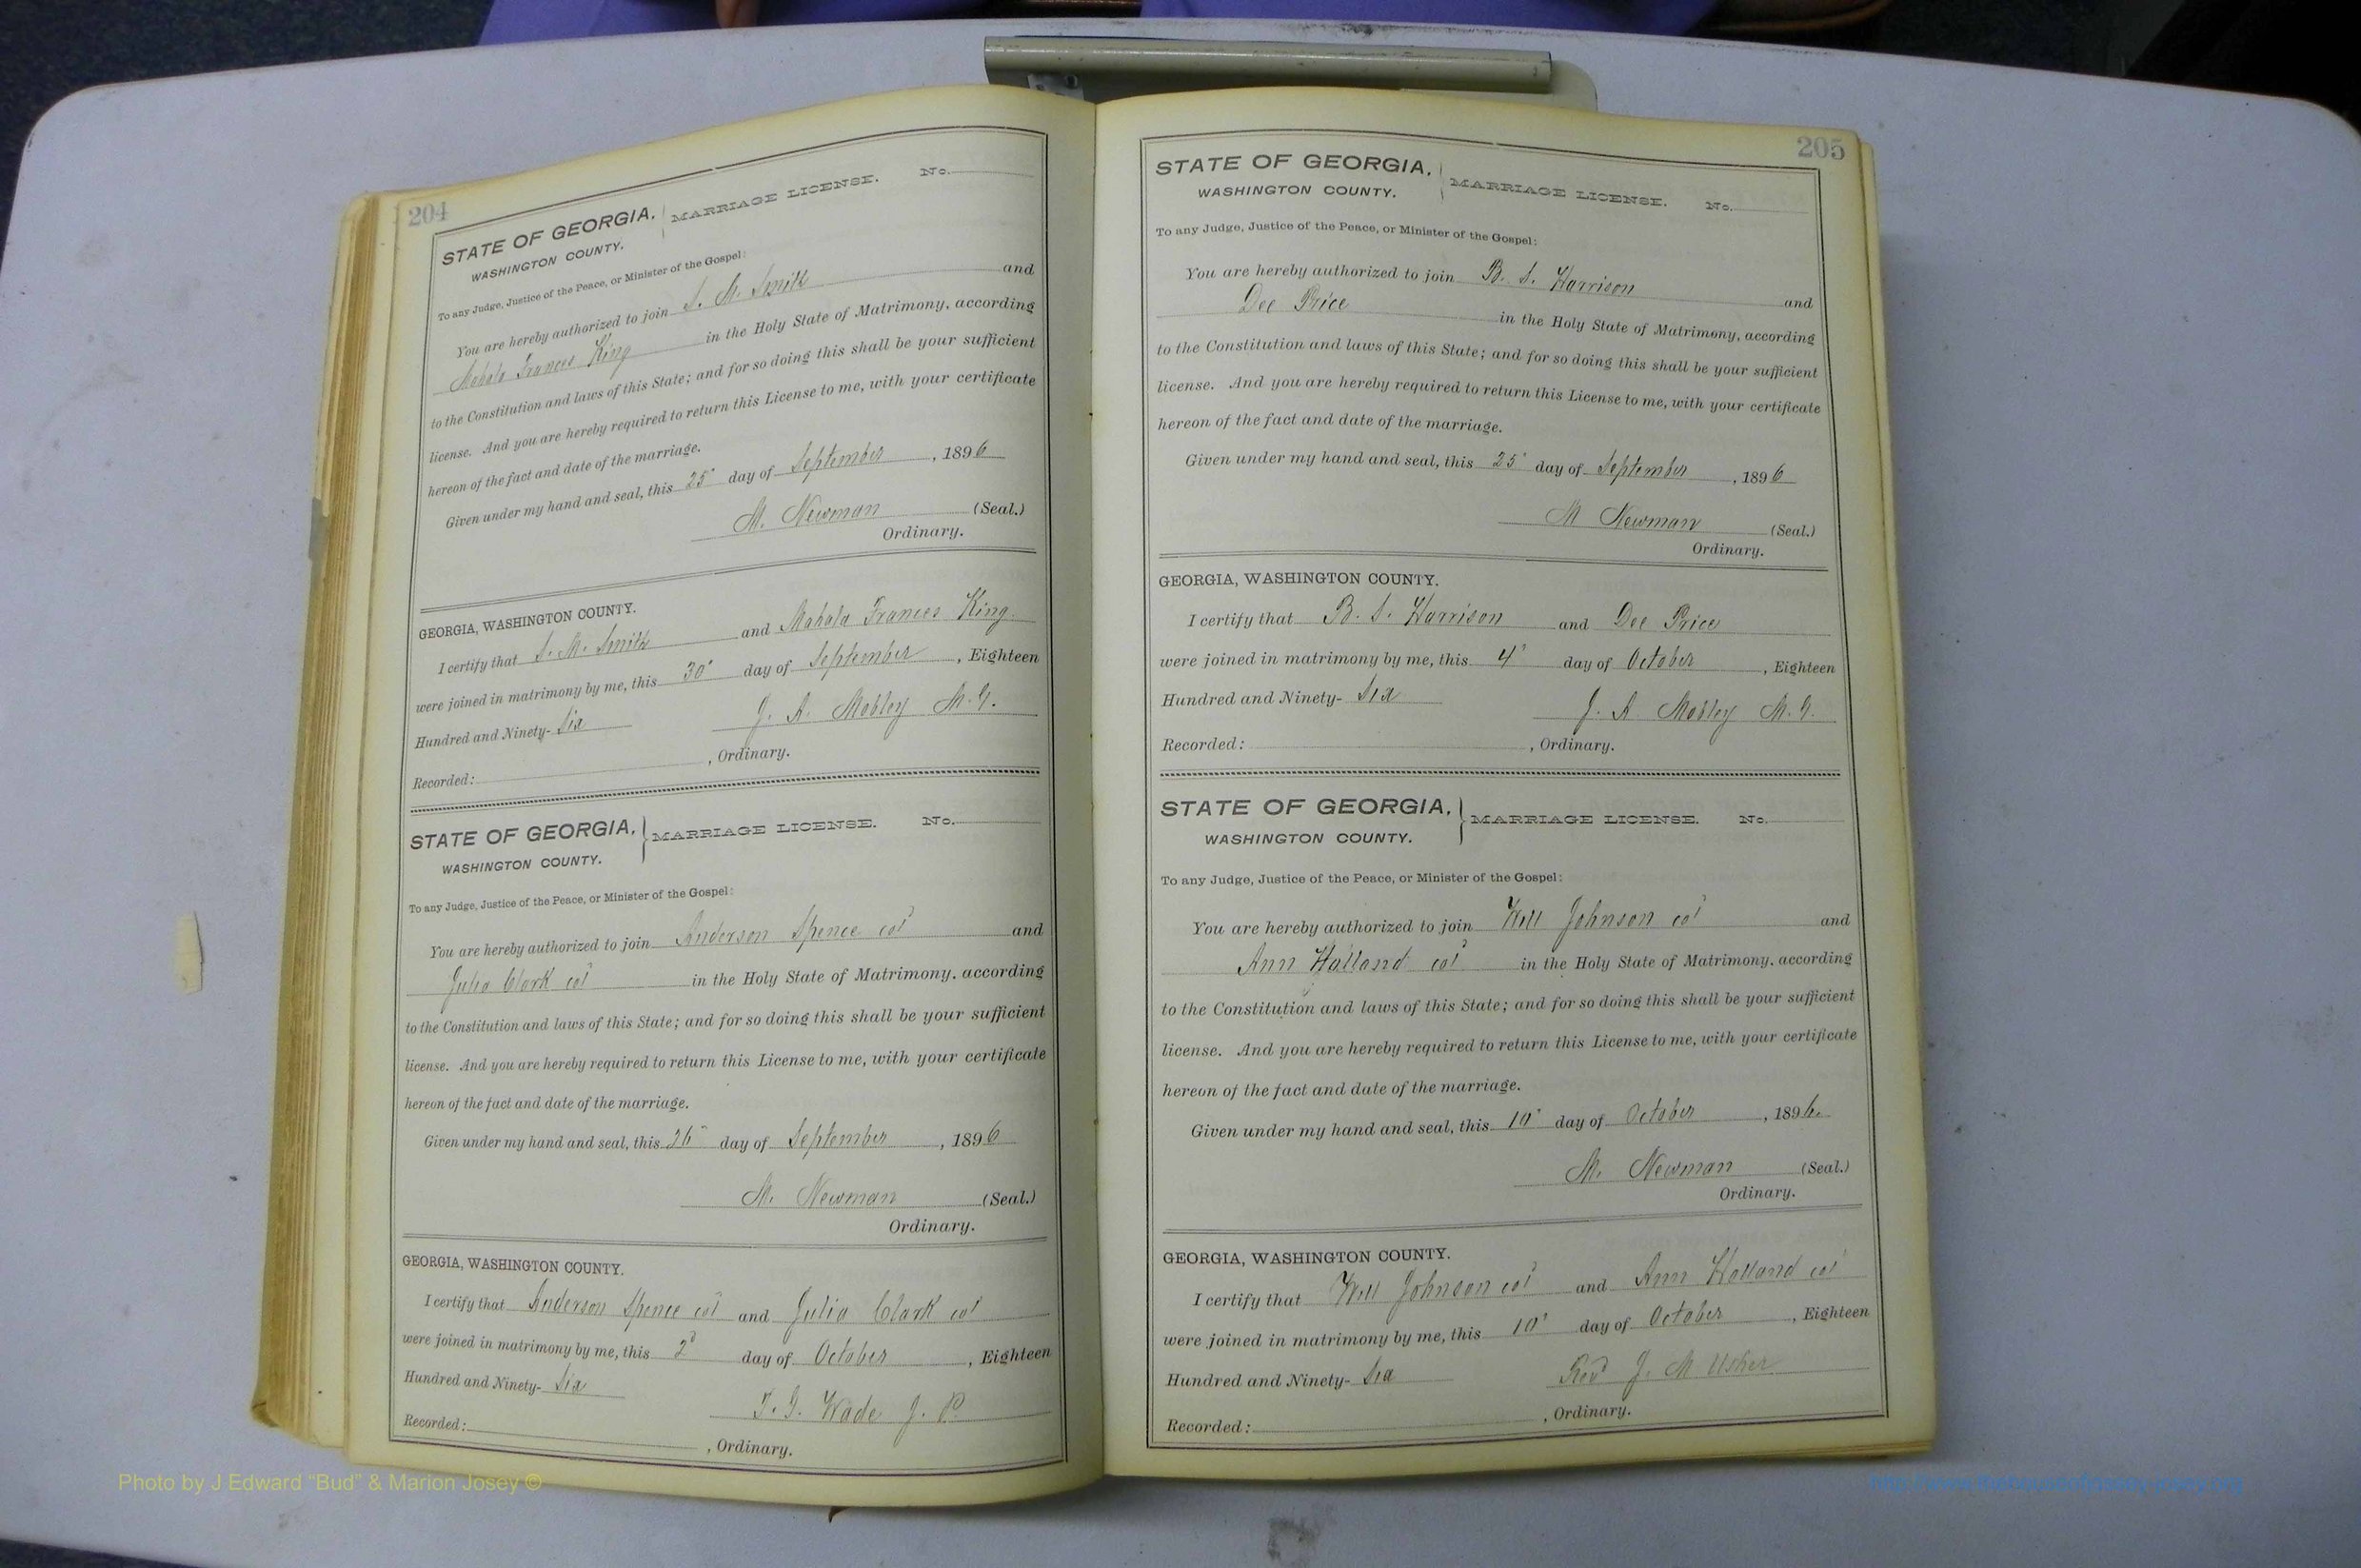 204
STATE OF GEORGIA, MARRIAGE LICENSE. No.
WASHINGTON COUNTY.
To any Judge, Justice of the Peace, or Minister of the Gospel:
You are hereby authorized to join S. M. Smith and
Mahala Frances King in the Holy State of Matrimony, according
to the Constitution and laws of this State; and for so doing this shall be your sufficient
license. And you are hereby required to return this License to me, with your certificate
hereon of the fact and date of the marriage.
Given under my hand and seal, this 25" day of September, 1896
M. Newman (Seal.)
Ordinary.
GEORGIA, WASHINGTON COUNTY.
I certify that S. M. Smith and Mahala Frances King.
were joined in matrimony by me, this 30" day of September, Eighteen
Hundred and Ninety-Six J. A. Mobley M.G.
Recorded: , Ordinary.
STATE OF GEORGIA, MARRIAGE LICENSE. No.
WASHINGTON COUNTY.
To any Judge, Justice of the Peace, or Minister of the Gospel:
You are hereby authorized to join Anderson Spence col and
Julia Clark col in the Holy State of Matrimony, according
to the Constitution and laws of this State; and for so doing this shall be your sufficient
license. And you are hereby required to return this License to me, with your certificate
hereon of the fact and date of the marriage.
Given under my hand and seal, this 26" day of September, 1896
M. Newman (Seal.)
Ordinary.
GEORGIA, WASHINGTON COUNTY.
I certify that Anderson Spence col and Julia Clark col
were joined in matrimony by me, this 2d day of October, Eighteen
Hundred and Ninety-Six T. G. Wade J. P.
Recorded: , Ordinary.
205
STATE OF GEORGIA, MARRIAGE LICENSE. No.
WASHINGTON COUNTY.
To any Judge, Justice of the Peace, or Minister of the Gospel:
You are hereby authorized to join B. S. Harrison and
Dee Price in the Holy State of Matrimony, according
to the Constitution and laws of this State; and for so doing this shall be your sufficient
license. And you are hereby required to return this License to me, with your certificate
hereon of the fact and date of the marriage.
Given under my hand and seal, this 25" day of September, 1896
M Newman (Seal.)
Ordinary.
GEORGIA, WASHINGTON COUNTY.
I certify that B. S. Harrison and Dee Price
were joined in matrimony by me, this 4" day of October, Eighteen
Hundred and Ninety-Six J. A. Mobley M.G.
Recorded: , Ordinary.
STATE OF GEORGIA, MARRIAGE LICENSE. No.
WASHINGTON COUNTY.
To any Judge, Justice of the Peace, or Minister of the Gospel:
You are hereby authorized to join Will Johnson col and
Ann Holland col in the Holy State of Matrimony, according
to the Constitution and laws of this State; and for so doing this shall be your sufficient
license. And you are hereby required to return this License to me, with your certificate
hereon of the fact and date of the marriage.
Given under my hand and seal, this 10" day of October, 1896.
M. Newman (Seal.)
Ordinary.
GEORGIA, WASHINGTON COUNTY.
I certify that Will Johnson col and Ann Holland col
were joined in matrimony by me, this 10" day of October, Eighteen
Hundred and Ninety-Six Revd J. M Usher
Recorded: , Ordinary.
Photo by J Edward “Bud” & Marion Josey ©